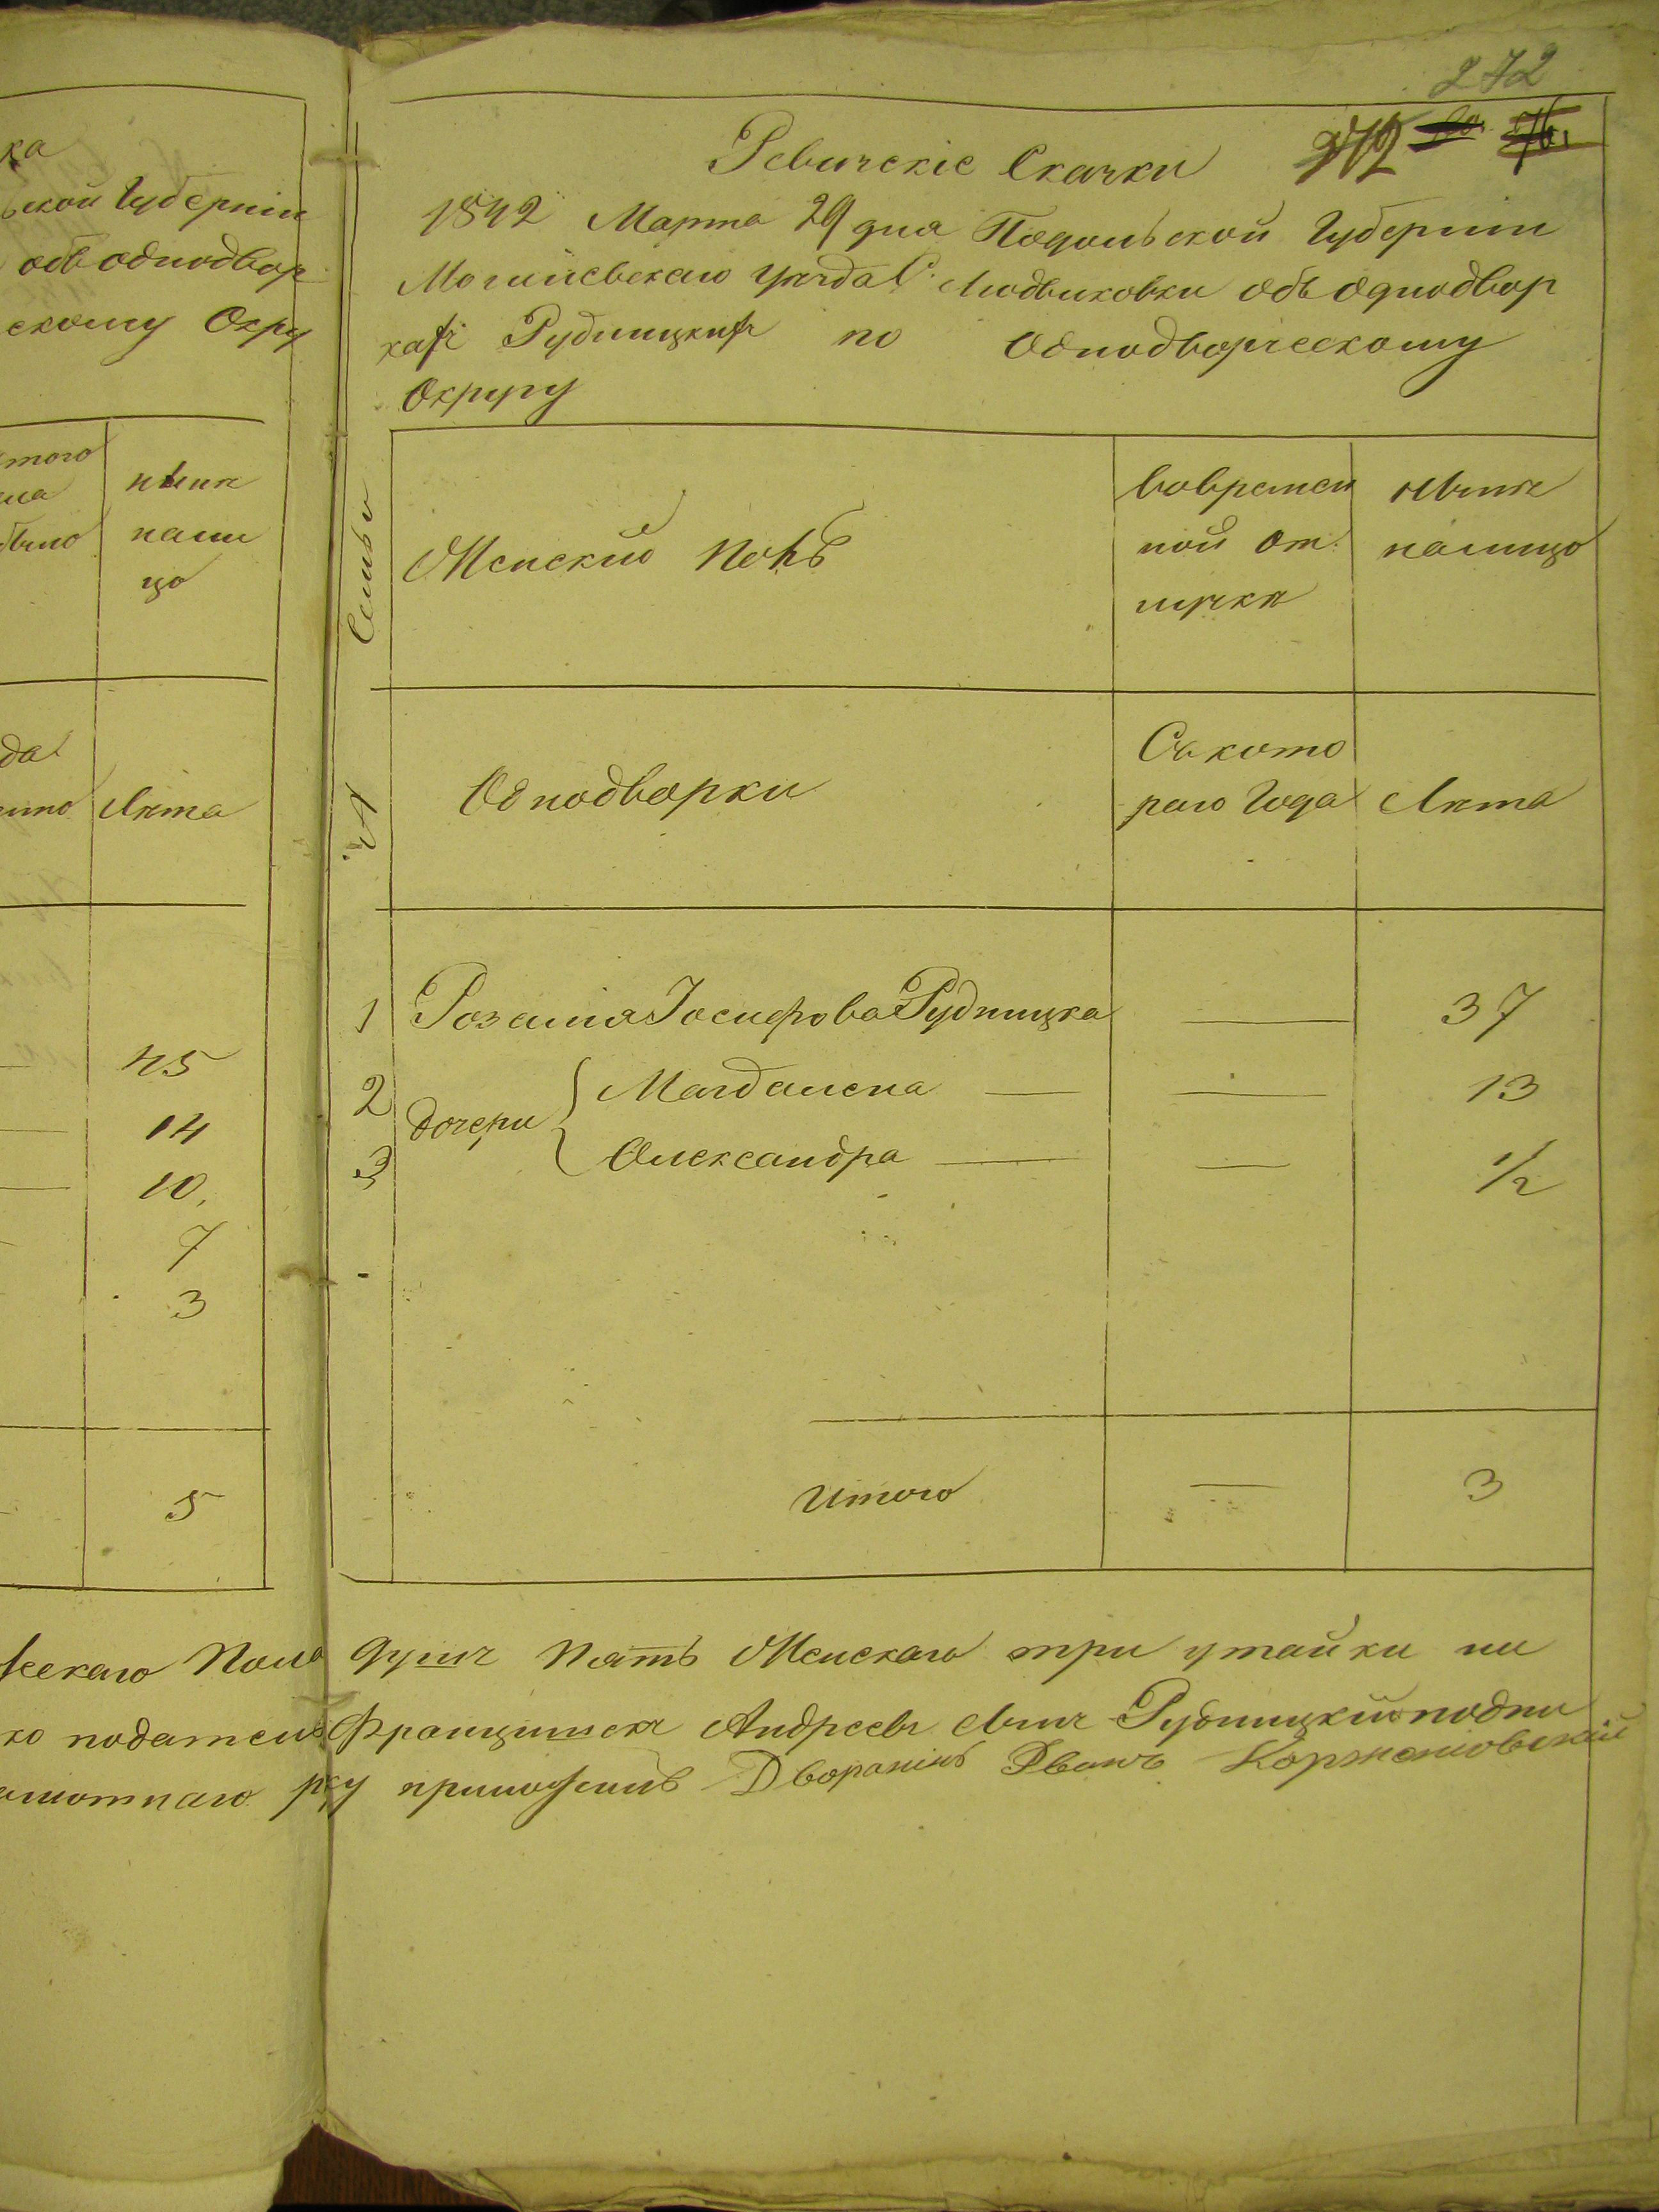 ка
ской Губерніи
объ однодвор
скому Окру
того
было
нынѣ
нали
цо
Лѣта
45
14
10
7
3
5
272
272
Ревизскіе Скачки
1842 Марта 29 дня Подольской Губерніи
Могилевскаго уѣзда С. Людвиковки объ Однодвор
кахъ Рудницкихъ по Однодворческому
Округу
Семьи
Женский полъ
вовремен
ной от
лучкѣ
нынѣ
налицо
№
Однодворки
Съ кото
раго Года
Лѣта
1 Розалия Іосифова Рудницка — 37
2 дочери Магдалена — — 13
3 Олександра — — 1/2
Итого — 3
жескаго Пола душъ пять Женскаго три утайки ни
ко податель Францишекъ Андреевъ сынъ Рудницкий подпи
амотнаго рку приложилъ Дворанинъ Иванъ Коржановский